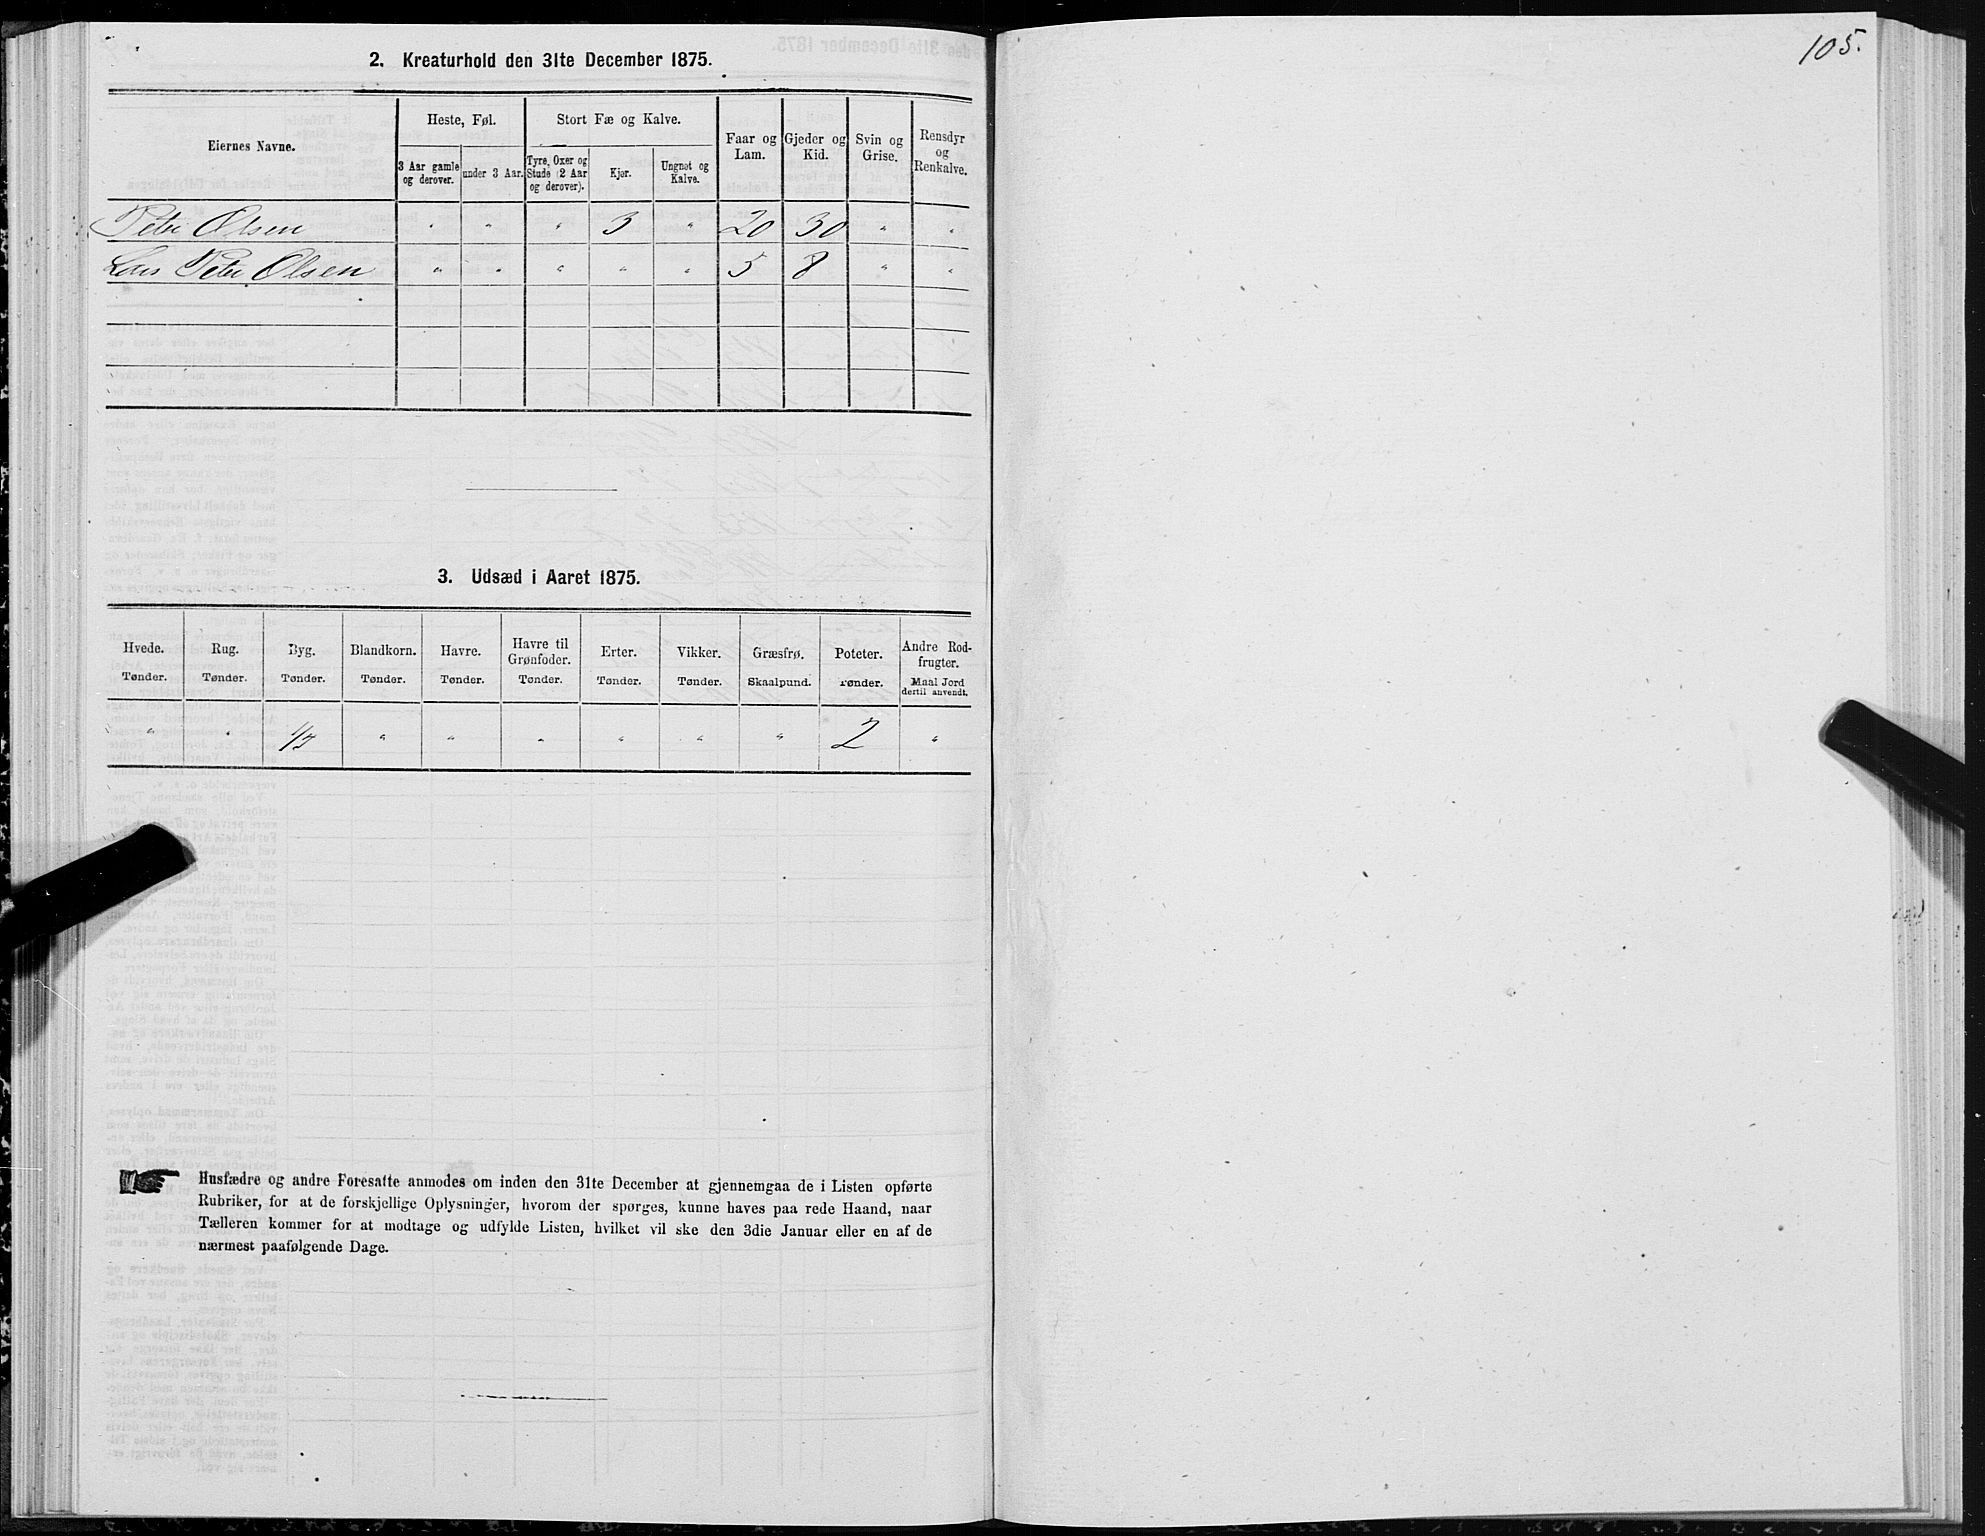 105.
2. Kreaturhold den 31te December 1875.
Eiernes Navne.
Heste, Føl.
Stort Fæ og Kalve.
Faar og Lam.
Gjeder og Kid.
Svin og Grise.
Rensdyr og Renkalve.
3 Aar gamle og derover.
under 3 Aar.
Tyre, Oxer og Stude (2 Aar og derover).
Kjør.
Ungnøt og Kalve.
Peter Olsen " " " 3 " 20 30 " "
Lars Peter Olsen " " " " " 5 8 " "
3. Udsæd i Aaret 1875.
Hvede. Rug. Byg. Blandkorn. Havre. Havre til Grønfoder. Erter. Vikker. Græsfrø. Poteter. Andre Rodfrugter.
Tønder. Tønder. Tønder. Tønder. Tønder. Tønder. Tønder. Tønder. Skaalpund. Tønder. Maal Jord dertil anvendt.
" " " " " " " " 2 "
Husfædre og andre Foresatte anmodes om inden den 31te December at gjennemgaa de i Listen opførte
Rubriker, for at de forskjellige Oplysninger, hvorom der spørges, kunne haves paa rede Haand, naar
Tælleren kommer for at modtage og udfylde Listen, hvilket vil ske den 3die Januar eller en af de
nærmest paafølgende Dage.